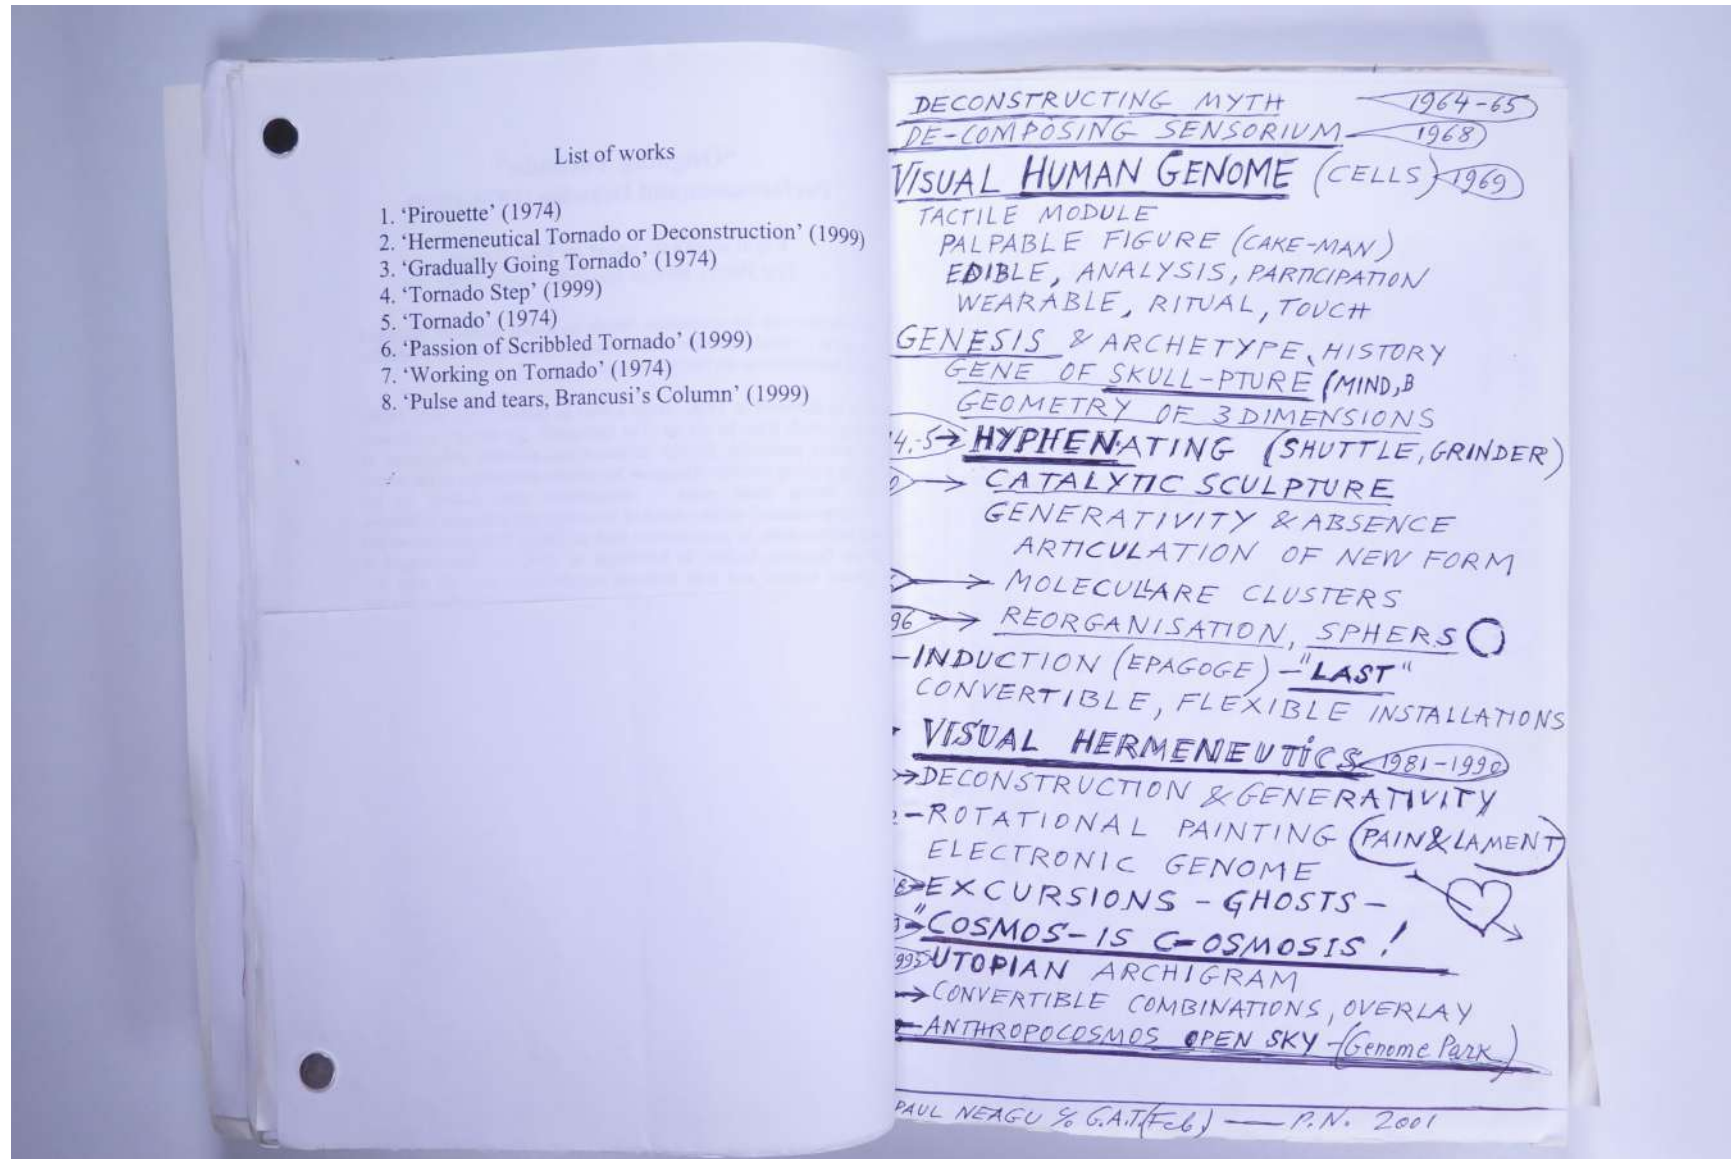 List of works
1. ‘Pirouette’ (1974)
2. ‘Hermeneutical Tornado or Deconstruction’ (1999)
3. ‘Gradually Going Tornado’ (1974)
4. ‘Tornado Step’ (1999)
5. ‘Tornado’ (1974)
6. ‘Passion of Scribbled Tornado’ (1999)
7. ‘Working on Tornado’ (1974)
8. ‘Pulse and tears, Brancusi’s Column’ (1999)
DECONSTRUCTING MYTH 1964-65
DE-COMPOSING SENSORIUM 1968
VISUAL HUMAN GENOME (CELLS) 1969
TACTILE MODULE
PALPABLE FIGURE (CAKE-MAN)
EDIBLE, ANALYSIS, PARTICIPATION
WEARABLE, RITUAL, TOUCH
GENESIS & ARCHETYPE, HISTORY
GENE OF SKULL-PTURE (MIND, B
GEOMETRY OF 3 DIMENSIONS
4.-5 → HYPHENATING (SHUTTLE, GRINDER)
→ CATALYTIC SCULPTURE
GENERATIVITY & ABSENCE
ARTICULATION OF NEW FORM
→ MOLECULLARE CLUSTERS
96 → REORGANISATION, SPHERS
- INDUCTION (EPAGOGE) - "LAST"
CONVERTIBLE, FLEXIBLE INSTALLATIONS
VISUAL HERMENEUTICS 1981-1990
→ DECONSTRUCTION & GENERATIVITY
- ROTATIONAL PAINTING (PAIN & LAMENT)
ELECTRONIC GENOME
EXCURSIONS - GHOSTS -
"COSMOS - IS C-OSMOSIS!
995 UTOPIAN ARCHIGRAM
→ CONVERTIBLE COMBINATIONS, OVERLAY
ANTHROPOCOSMOS OPEN SKY - (Genome Park)
PAUL NEAGU % G.A.T. (Feb) — P.N. 2001